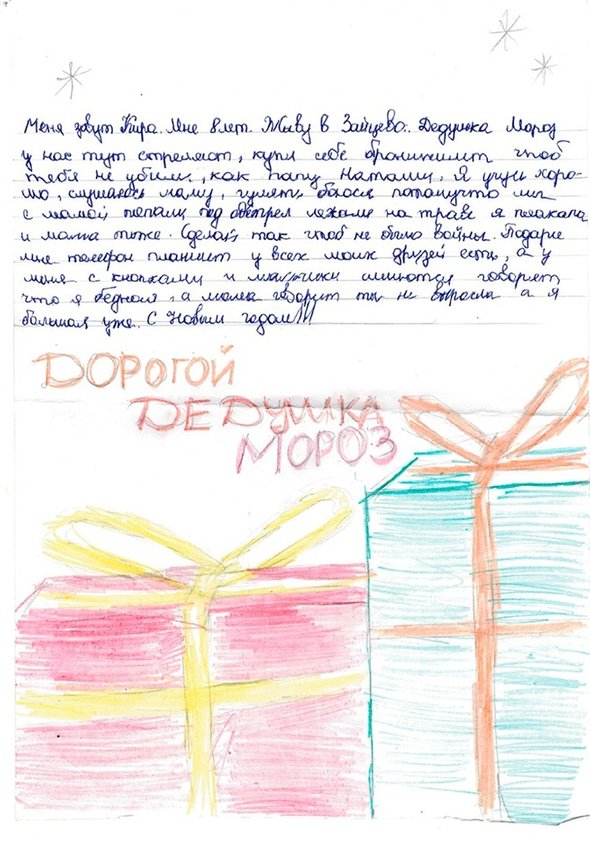 Меня зовут Кира. Мне 8 лет. Живу в Зайцево. Дедушка Мороз
у нас тут стреляют, купи себе бронижилет чтоб
тебя не убили, как папу Наташи. Я учусь хоро-
шо, слушаюсь маму, гулять боюся потомушто мы
с мамой попали под обстрел лежали на траве я плакала
и мама тоже. Сделай так чтоб не было войны. Подари
мне телефон планшет у всех моих друзей есть, а у
меня с кнопками и мальчики смиются говорят
что я бедная, а мама говорит ты не выросла а я
большая уже. С Новым годом!!!
ДОРОГОЙ
ДЕДУШКА
МОРОЗ